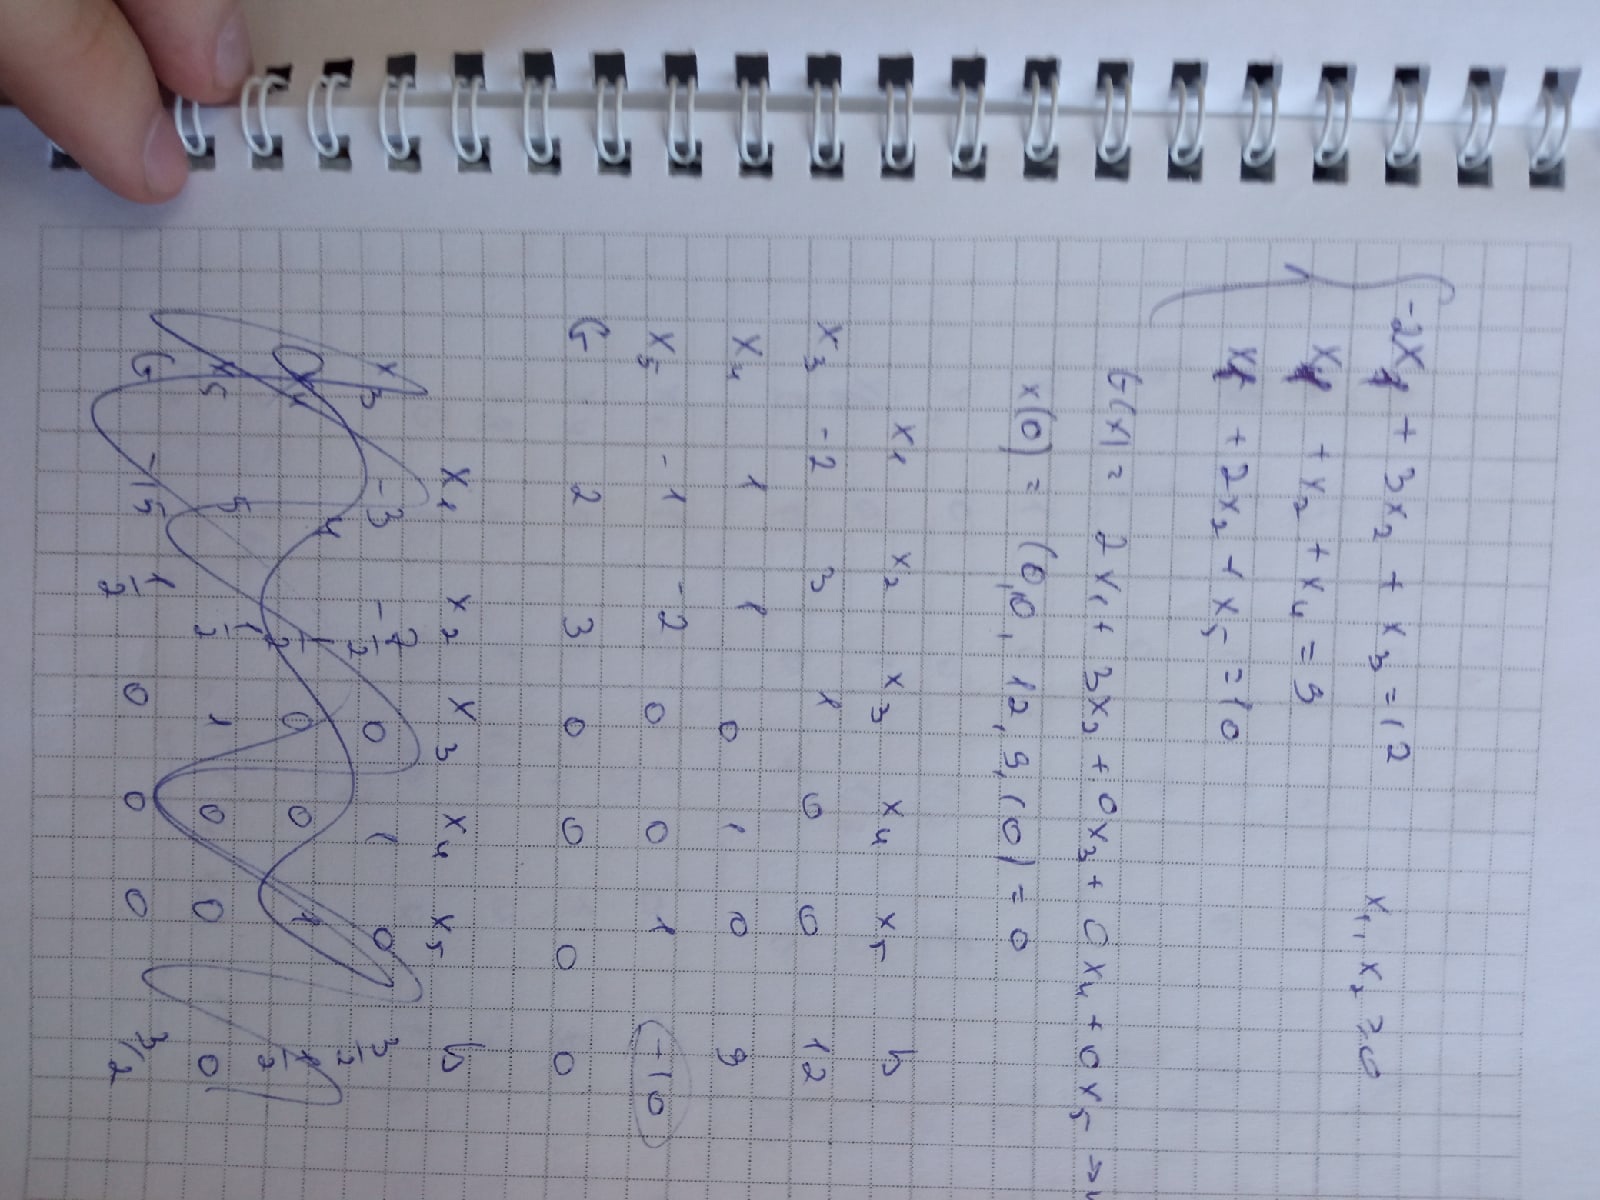 -2x₁ + 3x₂ + x₃ = 12
x₁, x₂ ≥ 0
x₁ + x₂ + x₄ = 9
x₁ + 2x₂ + x₅ = 10
G(x) = 2x₁ + 3x₂ + 0x₃ + 0x₄ + 0x₅ →
x(0) = (0,0, 12, 9, 10) = 0
x₁ x₂ x₃ x₄ x₅ b
x₃ -2 3 1 0 0 12
x₄ 1 1 0 1 0 9
x₅ -1 -2 0 0 1 -10
G 2 3 0 0 0 0
x₁ x₂ x₃ x₄ x₅ b
x₃ -3 -7/2 0 1 0 3/2
x₄ 4 1/2 0 0 1 1/2
x₅ 5 1/2 1 0 0 0
G -15 1/2 0 0 0 3/2